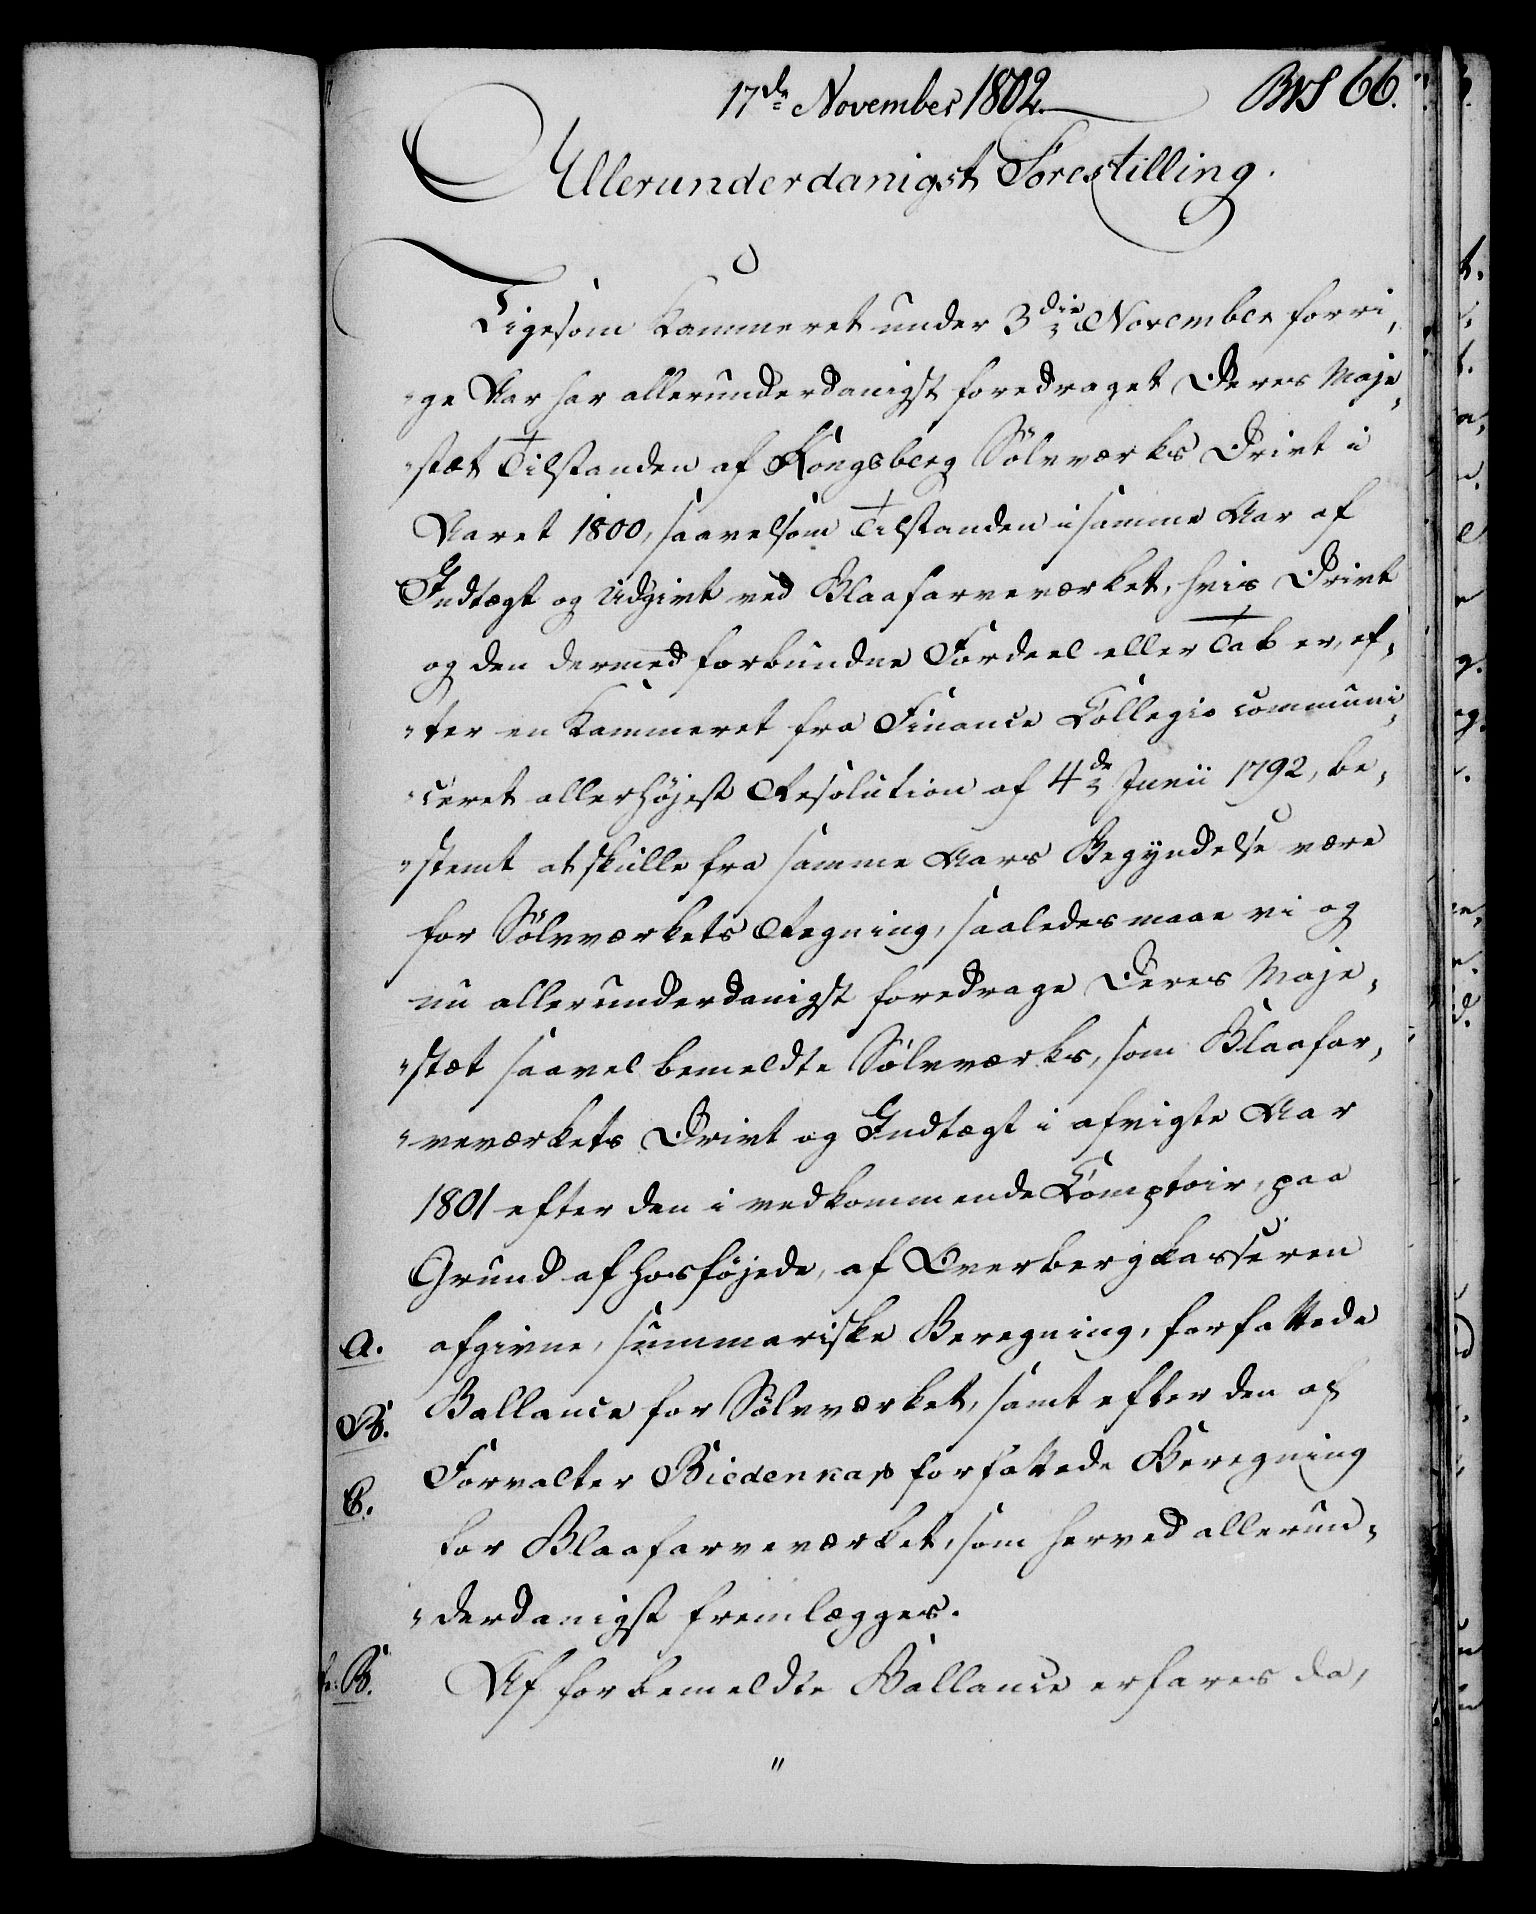 17de November 1802.
BVS 66.
Allerunderdanigst Forestilling.
Ligesom Kammeret under 3die November forri,
"ge Aar har allerunderdanigst foredraget Deres Maje,
"stæt Tilstanden af Kongsberg Sölvværks Drivt i
Aaret 1800, saavelsom Tilstanden i samme Aar af
Indtægt og Udgivt ved Blaafarveværket, hvis Drivt
og den dermed forbundne Fordeel eller Tab er, ef,
"ter en Kammeret fra Finance Collegio communi,
"ceret allerhöjest Resolution af 4de Junii 1792, be,
"stemt at skulle fra samme Aars Begyndelse være
for Sölvværkets Regning, saaledes maae vi og
nu allerunderdanigst foredrage Deres Maje,
"stæt saavel bemeldte Sölvværks, som Blaafar,
"veværkets Drivt og Indtægt i afvigte Aar
1801 efter den i vedkommende Comptoir, paa
Grund af hosföjede, af Overbergkasseren
A. afgivne, summariske Beregning, forfattede
B. Ballance for Sölvværket, samt efter den af
C. Forvalter Biedenkap forfattede Beregning
for Blaafarveværket, som herved allerun,
"derdanigst fremlægges.
B. Af forbemeldte Ballance erfares da,
"